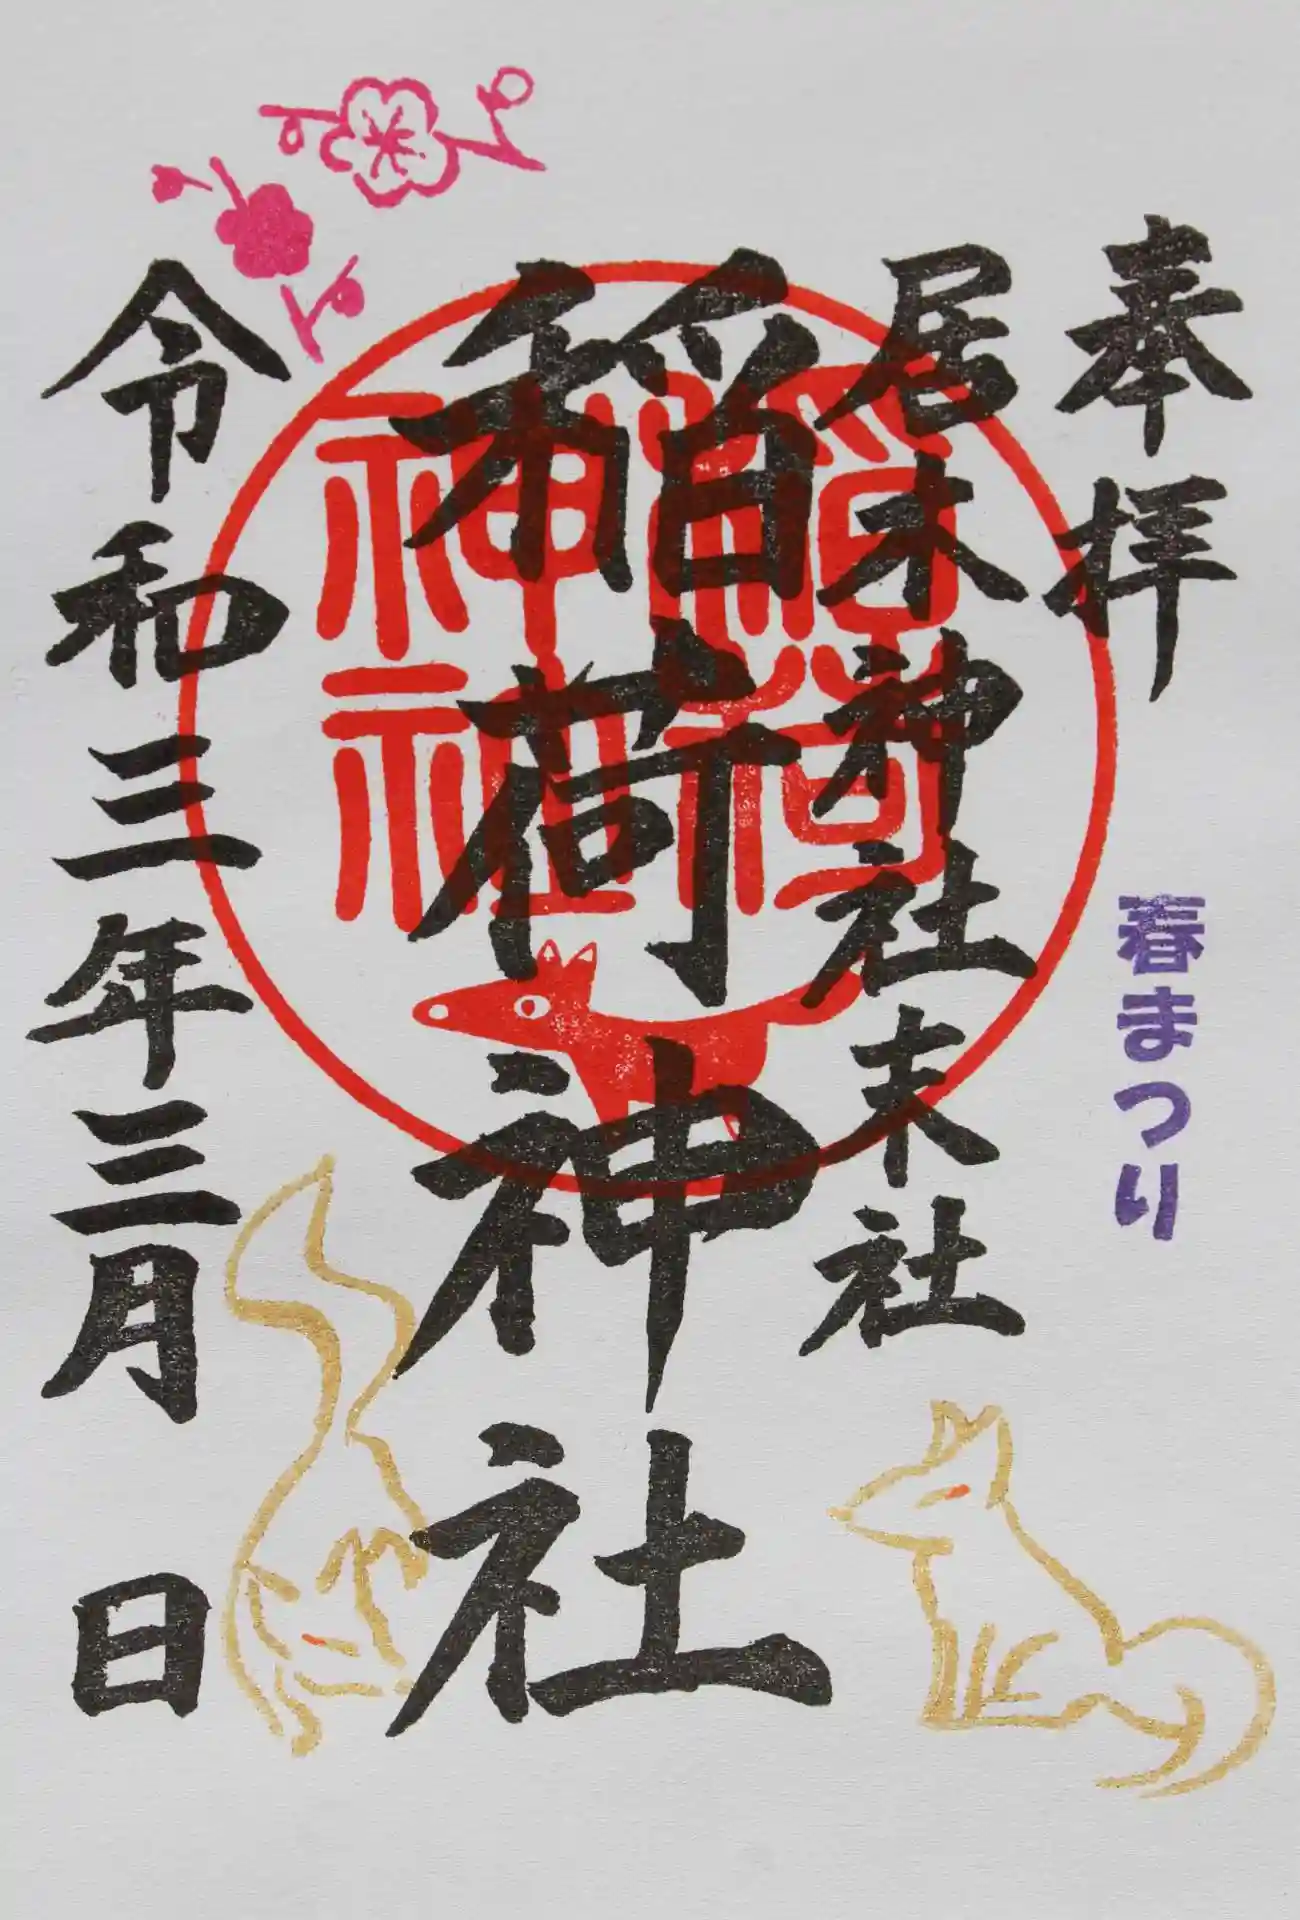 奉拝
春まつり
居木神社末社
稲荷神社
稲荷神社
令和三年三月 日